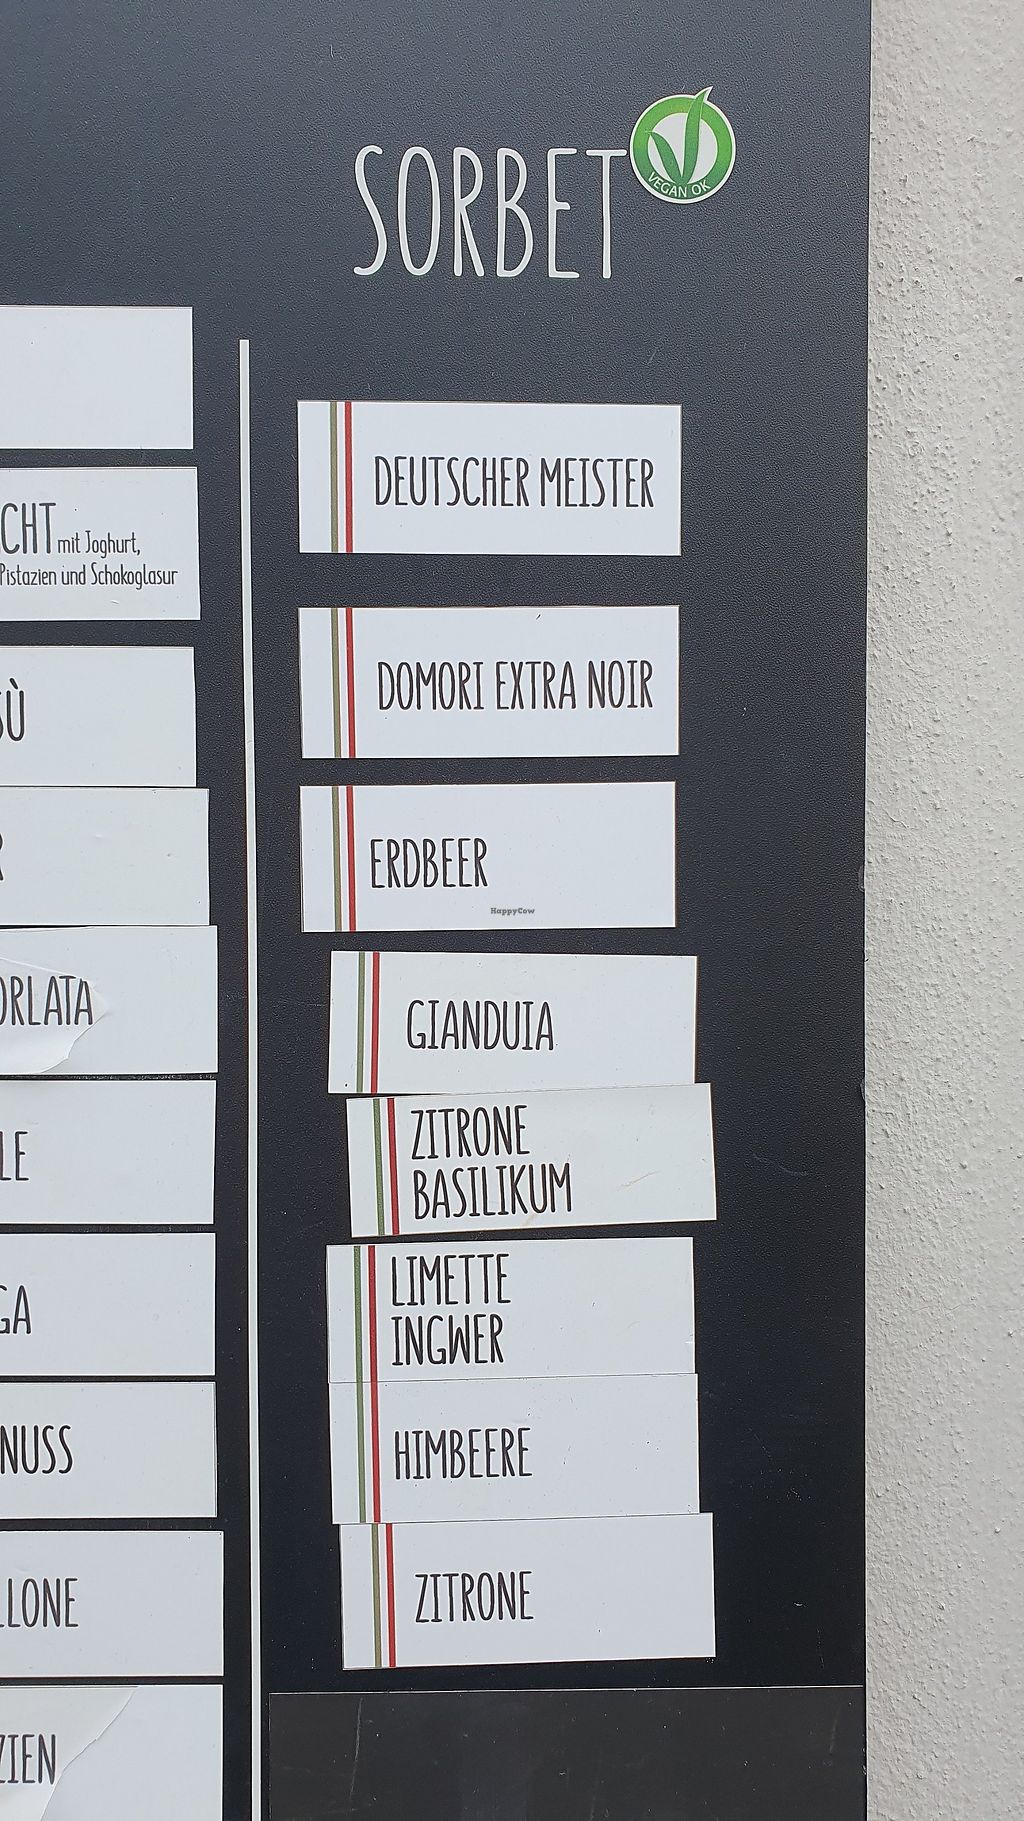 SORBET
VEGAN OK
CHT mit Joghurt,
Pistazien und Schokoglasur
SÙ
R
ORLATA
LE
GA
NUSS
LLONE
ZIEN
DEUTSCHER MEISTER
DOMORI EXTRA NOIR
ERDBEER
HappyCow
GIANDUIA
ZITRONE
BASILIKUM
LIMETTE
INGWER
HIMBEERE
ZITRONE